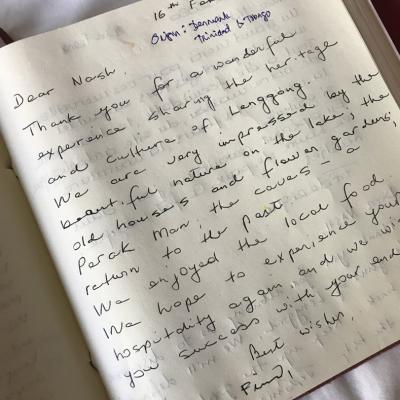 16th Feb
Origin: Denmark
Trinidad & Tobago
Dear Nash.
Thank you for a wonderful
experience sharing the heritage
and culture of Lenggong.
We are very impressed by the
beautiful nature on the lake, the
old houses and flower gardens,
Perak Man, the caves – a
return to the past.
We enjoyed the local food.
We hope to experience your
hospitality again and we wi
you success with your end
Best wishes,